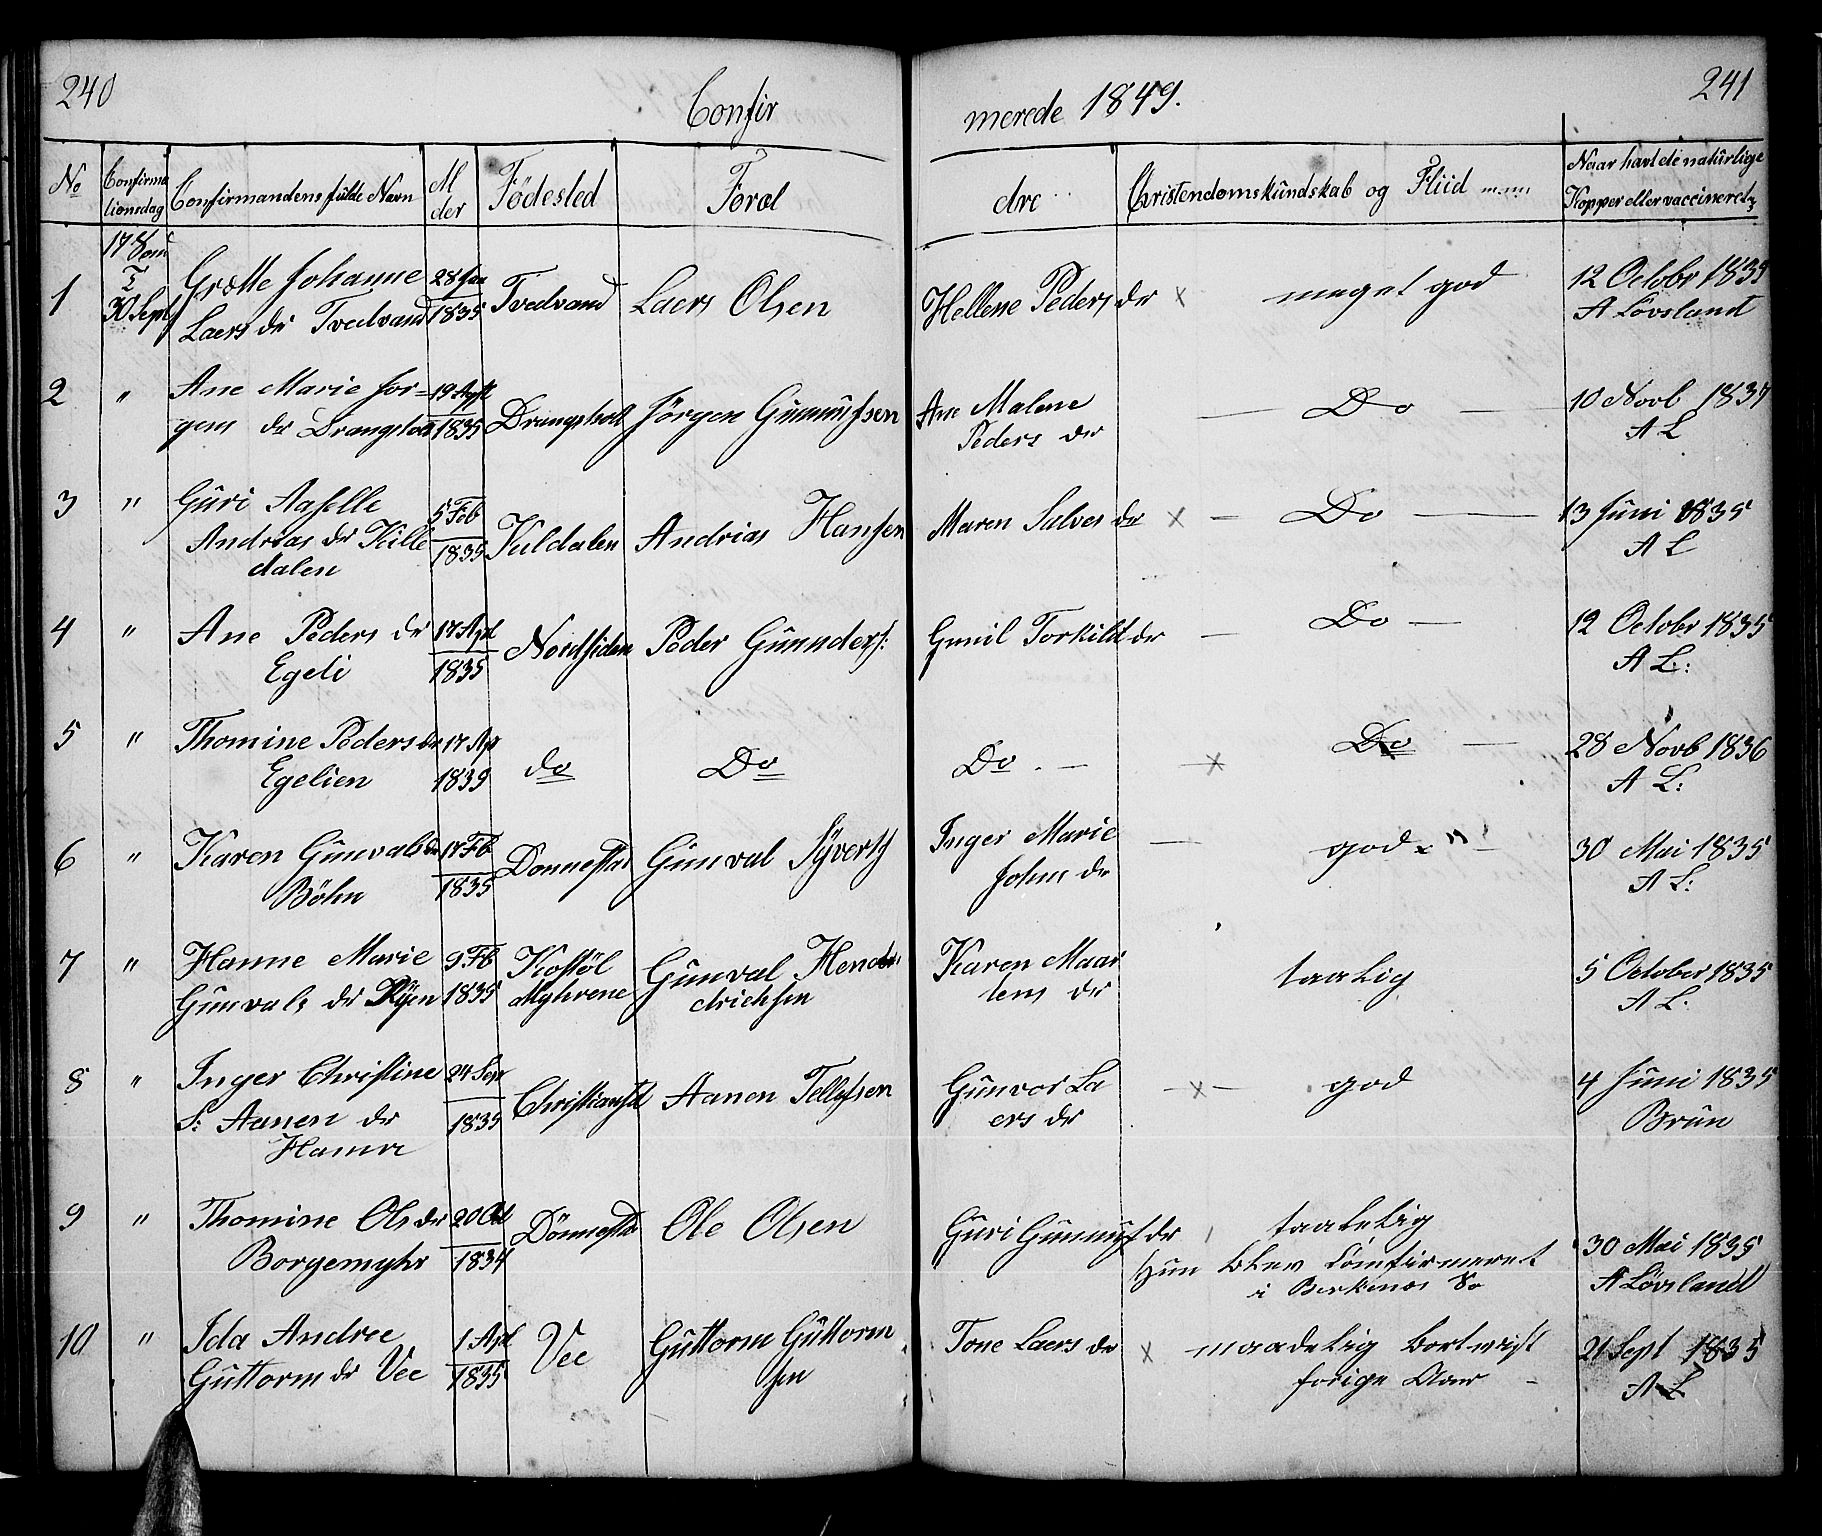 240
Confir
merede 1849.
241
No
Confirma
tionsdag
Confirmandens fulde Navn
Födested
Foræl
dre
Christendomskundskab og Fliid
Naar havt de naturlige
Kopper eller vaccineret
1
17 Son
T
30 Sept
Grætte Johanne
Laers dr Tvedvand
28 Jan
1835
Tvedvand
Laers Olsen
Hellene Peders dr
x
meget god
12 Octobr 1835
A Lövsland
2
"
Ane Marie Jör=
gens dr Drangsholt
19 Apl
1835
Drangsholt
Jörgen Gunnufsen
Ane Malene
Peders dr
— Do —
10 Novb 1837
A L
3
"
Guri Aaselle
Andrias dr Kille
dalen
5 Feb
1835
Kuldalen
Andrias Hansen
Maren Salves dr
x — Do —
13 Juni 1835
A L
4
"
Ane Peders dr
Egeli
17 Apl
1835
Nordsiden
Peder Gunnders:
Gunil Torkilds dr
— Do —
12 Octobr 1835
A L:
5
"
Thomine Peders dr
Egelien
17 Ap
1839
do
Do
Do. —
x
Do —
28 Novb 1836
A L:
6
"
Karen Gunvals dr
Böhn
17 Fb
1835
Donnestad
Gunval Syverts
Inger Marie
Johns dr
— god
30 Mai 1835
A L:
7
"
Hanne Marie
Gunvals dr Ryen
9 Fb
1835
Kostöl
Myhrene
Gunval Hen
drichsen
Karen Maar
tens dr
taalig
5 October 1835
A L:
8
"
Inger Christine
S: Aanen dr
Hamre
24 Sept
1835
Christiansd
Aanen Tellefsen
Gunvor La
ers dr
— x — god
4 Juni 1835
Brun
9
"
Thomine Ols dr
Borgemyhr
20 Oct
1834
Dönnestad
Ole Olsen
Guri Gunnufs dr
taalelig
Hun blev Comfirmeret
i Berkenæs
30 Mai 1835
A Lövsland
10
"
Ida Andree
Guttorm dr Vee
1 Apl
1835
Vee
Guttorm Guttorm
sen
Tone Laers dr
x maadelig bortvist
forige Aar —
21 Sept 1835
A L